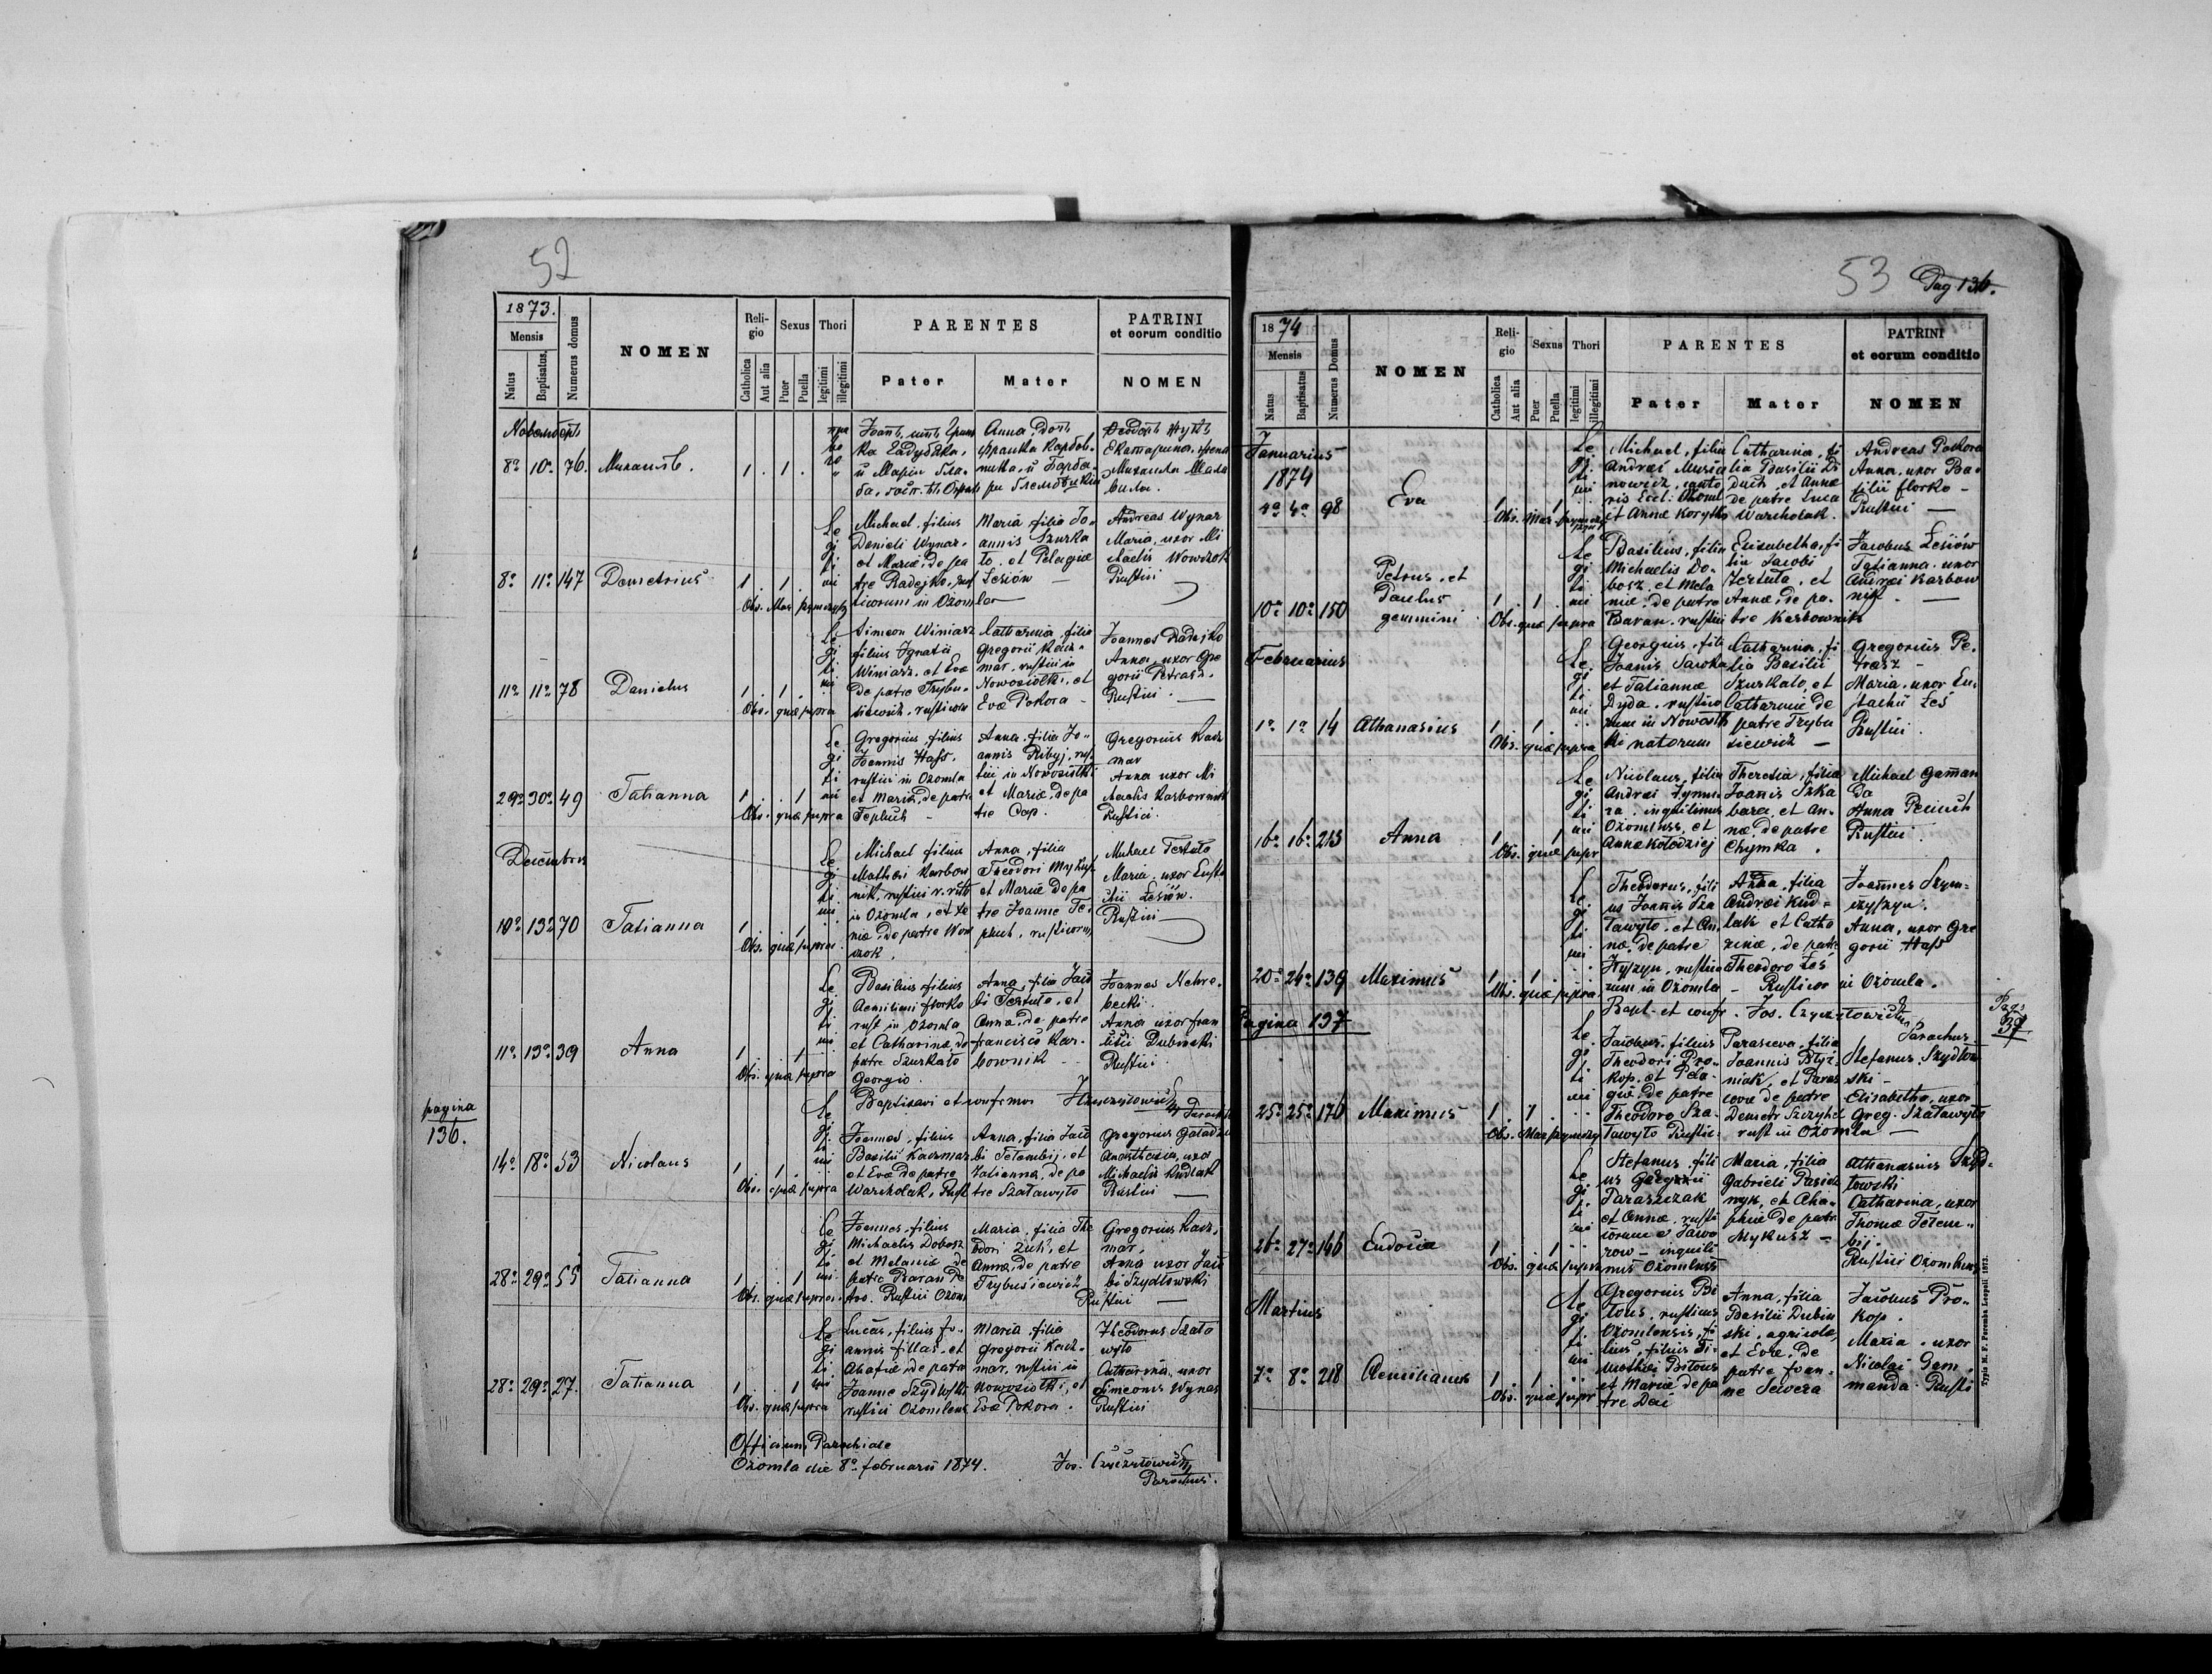 52
1873.
Mensis
Natus
Baptisatus
Numerus domus
NOMEN
Religio
Catholica
Aut alia
Sexus
Puer
Puella
Thori
legitimi
illegitimi
PARENTES
Pater
Mater
PATRINI
et eorum conditio
NOMEN
8ª 10ª 76. Михаилъ.
1 . 1 .
Анна, доч.
8ª 11ª 147 Demetrius
1 . 1 .
Legitimi
Michael, filius
Danieli Wynar
et Mariæ, de pa
tre Radejko, rus
ticorum in Ożomla
Maria, filia Jo
annis Szurka
to, et Pelagiæ
Lesiów
Andreas Wynar
Maria, uxor Mi
chaelis Wowczok
Rustici
11ª 11ª 78 Danielus
1 . 1 .
Obs. quæ supra
Legitimi
Simeon Winiarz
filius Ignatii
Winiarz, et Evæ
de patre Trybu
siewicz, rusticor
Catharina, filia
Gregorii Kacz
mar, rustici in
Nowosiółki, et
Evæ Pokora
Joannes Radejko
Anna, uxor Gre
gorii Petrasz.
Rustici
29ª 30ª 49 Tatianna
1 . . 1
Obs. quæ supra
Legitimi
Gregorius, filius
Joannis Hass,
rustici in Ożomla
et Mariæ, de patre
Tepluch
Anna, filia Jo
annis Ribyj, rus
tici in Nowosiółki
et Mariæ, de pa
tre Cap.
Gregorius Kacz
mar
Anna uxor Mi
chaelis Karbownik
Rustici.
Decembris
10ª 13ª 70 Tatianna
1 . . 1
Obs. quæ supra
Legitimi
Michael filius
Mathei Karbow
nik, rustici
in Ożomla, et Xe
niæ, de patre Wow
czok.
Anna, filia
Theodori Mykusz
et Mariæ de pa
tre Joanne Te
pluch, rusticorum
Michael Testuto
Maria, uxor Eusta
chii Lesiów.
Rustici
11ª 13ª 39 Anna
1 . . 1
Obs. quæ supra
Legitimi
Basilius filius
Aemiliani Florko
rust in Ożomla
et Catharinæ, de
patre Szurkało
Georgio.
Anna, filia Jaco
bi Testuto, et
Annæ, de patre
Francisco Kar
bownik
Joannes Nehre
becki.
Anna uxor Fran
cisci Dubinski
Rustici.
Baptisavi et confirmavi
Parochus
pagina
136.
14ª 18ª 53 Nicolaus
1 . 1 .
Obs. quæ supra
Legitimi
Joannes, filius
Basilii Kaczmar
et Evæ de patre
Warcholak, Rust
Anna, filia Jaco
bi Telembij, et
Tatiannæ, de pa
tre Szaławyło
Gregorius Gaładza
Anasthasia, uxor
Michaelis Kudlak
Rustici
28ª 29ª 55 Tatianna
1 . . 1
Obs. quæ supra
Legitimi
Joannes, filius
Michaelis Dobosz
et Melaniæ de
patre Baran Pe
tro. Rustici Ożom
Maria, filia The
odori Zuk, et
Annæ, de patre
Trybusiewicz
Gregorius Kacz
mar.
Anna uxor Jaco
bi Szydłowski
Rustici
28ª 29ª 27. Tatianna
1 . . 1
Obs. quæ supra
Legitimi
Lucas, filius Jo
annis Fillas, et
Ahafiæ, de patre
Joanne Szydłowski
rustici Ożomlens
Maria, filia
Gregorii Kacz
mar, rustici in
Nowosiółki, et
Evæ Pokora.
Theodorus Szała
wyło
Catharina, uxor
Simeonis Wynar
Rustici
Officium Parochiale
Ożomla die 8ª februarii 1874.
Parochus.
53
Pag 136.
1874
Mensis
Natus
Baptisatus
Numerus Domus
NOMEN
Religio
Catholica
Aut alia
Sexus
Puer
Puella
Thori
legitimi
illegitimi
PARENTES
Pater
Mater
PATRINI
et eorum conditio
NOMEN
Januarius
1874
4ª 4ª 98 Eva
Legitimi
Michael, filius
Andreæ Musia
nowicz, canto
ris Eccl. Ożoml
et Annæ Korytko
Catharina, fi
lia Basilii Di
duch, et Annæ
de patre Luca
Warcholak.
Andreas Pokora
Anna, uxor Ba
silii Florko
Rustici
10ª 10ª 150 Petrus, et
Paulus
gemmini
1 . 1 .
Obs. quæ supra
Legitimi
Basilius, filius
Michaelis Do
bosz, et Mela
niæ, de patre
Baran, rustici
Elisabetha, fi
lia Jacobi
Testuta, et
Annæ, de pa
tre Karbownik
Jacobus Lesiów
Tatianna, uxor
Andreæ Karbow
nik.
Februarius
1ª 1ª 14 Athanasius
1 . 1 .
Obs. quæ supra
Legitimi
Georgius, fili
Joannis Saroka
et Tatiannæ
Dyda, rustico
rum in Nowosiół
ki natorum
Catharina, fi
lia Basilii
Szurkało, et
Catharinæ de
patre Trybu
siewicz
Gregorius Pe
trasz
Maria, uxor Eu
stachii Łeś
Rustici.
16ª 16ª 213 Anna
1 . . 1
Obs. quæ supr
Legitimi
Nicolaus, filius
Andreæ Zymn
ra, inquilinus
Ożomlens, et
Annæ Kołodziej
Theresia, filia
Joannis Szka
bara, et An
næ, de patre
Chymka.
Michael Gaman
da
Anna Peciuch
Rustici.
20ª 24ª 139 Maximus
1 . 1 .
Obs. quæ supra
Legitimi
Theodorus, fili
us Joannis Sza
ławyło, et An
næ, de patre
Hyszyn, rustico
rum in Ożomla
Anna, filia
Andreæ Kud
lak et Catha
rinæ, de patre
Theodoro Łeś
Joannes Szym
czyszyn.
Anna, uxor Gre
gorii Hass
Rusticor in Ożomla.
Bapt. et confr. Jos.
Parochus
Pagina 137
Pag:
25ª 25ª 176 Maximus
1 . 1 .
Legitimi
Jacobus, filius
Theodori Pro
kop, et Pela
giæ, de patre
Theodoro Sza
ławyło Rustic.
Parasceva, filia
Joannis Blyz
niak, et Paras
cevæ de patre
Demetr. Szczyhel
rust in Ożomla
Stefanus Szydłow
ski
Elisabetha, uxor
Greg. Szaławyło
26ª 27ª 146 Eudocia
1 . . 1
Obs. quæ supra
Legitimi
Stefanus, fili
us Gregorii
Paraszczak
et Annæ, rusti
corum e Jawo
row inquili
nus Ożomlens
Maria, filia
Gabrieli Pasicz
nyk, et Aha
phiæ de patre
Mykusz
Athanasius Szyd
łowski
Catharina, uxor
Thomæ Telem
bij.
Rustici Ożomlens
Martius
7ª 8ª 218 Aemilianus
1 . 1 .
Obs. quæ supr
Legitimi
Gregorius Bi
tous, rusticus
Ożomlensis, fi
lius
Mathæi Bitous
et Mariæ de pa
tre Dac
Anna, filia
Basilii Dubin
ski, agricola,
et Evæ, de
patre Joan
ne Siwera
Jacobus Pro
kop.
Maria, uxor
Nicolai Gam
manda. Rusti
Typis M. F. Poremba Leopoli 1872.